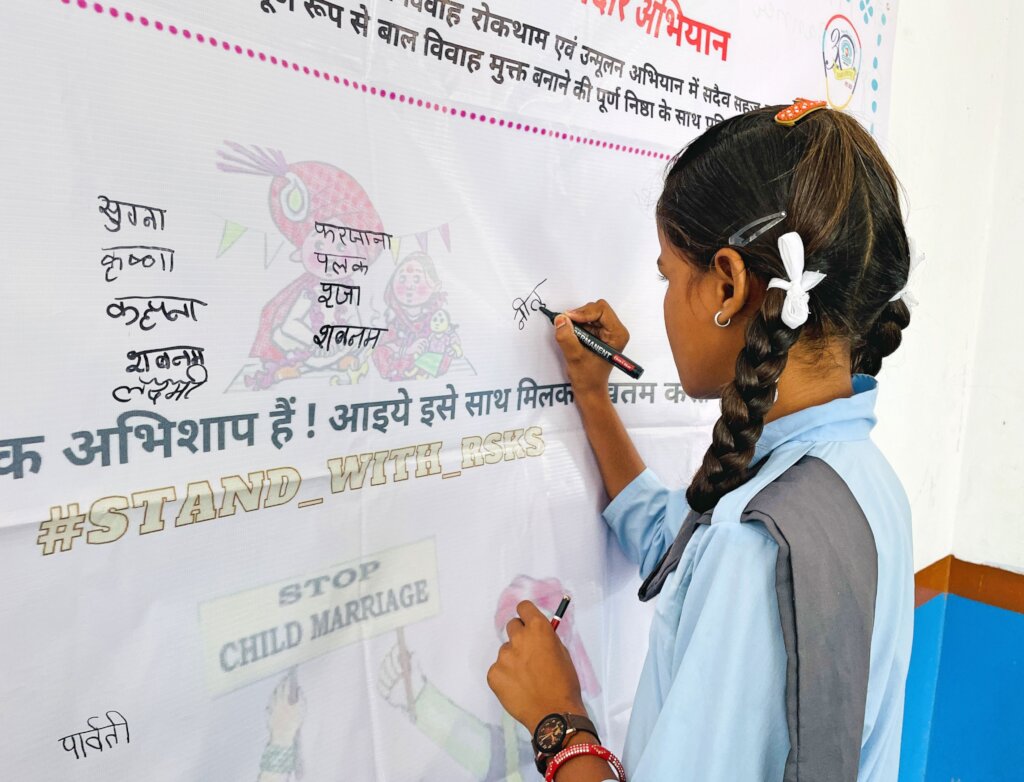 अभियान
विवाह रोकथाम एवं उन्मूलन अभियान में सदैव
रूप से बाल विवाह मुक्त बनाने की पूर्ण निष्ठा के साथ
सुगना
कृष्णा
कल्पना
शबनम
लक्ष्मी
फरजाना
पलक
पूजा
शबनम
अभिशाप हैं ! आइये इसे साथ
#STAND_WITH_RSKS
STOP
CHILD MARRIAGE
पार्वती
PERMANENT